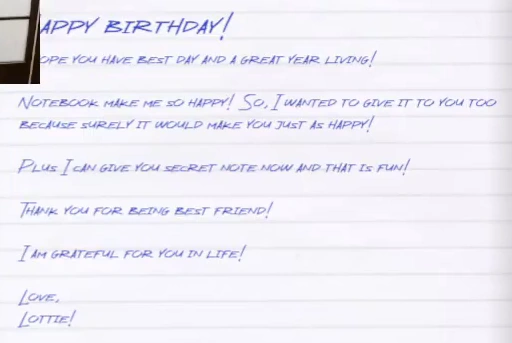 APPY BIRTHDAY!
OPE YOU HAVE BEST DAY AND A GREAT YEAR LIVING!
NOTEBOOK MAKE ME SO HAPPY! SO, I WANTED TO GIVE IT TO YOU TOO
BECAUSE SURELY IT WOULD MAKE YOU JUST AS HAPPY!
PLUS I CAN GIVE YOU SECRET NOTE NOW AND THAT IS FUN!
THANK YOU FOR BEING BEST FRIEND!
I AM GRATEFUL FOR YOU IN LIFE!
LOVE,
LOTTIE!